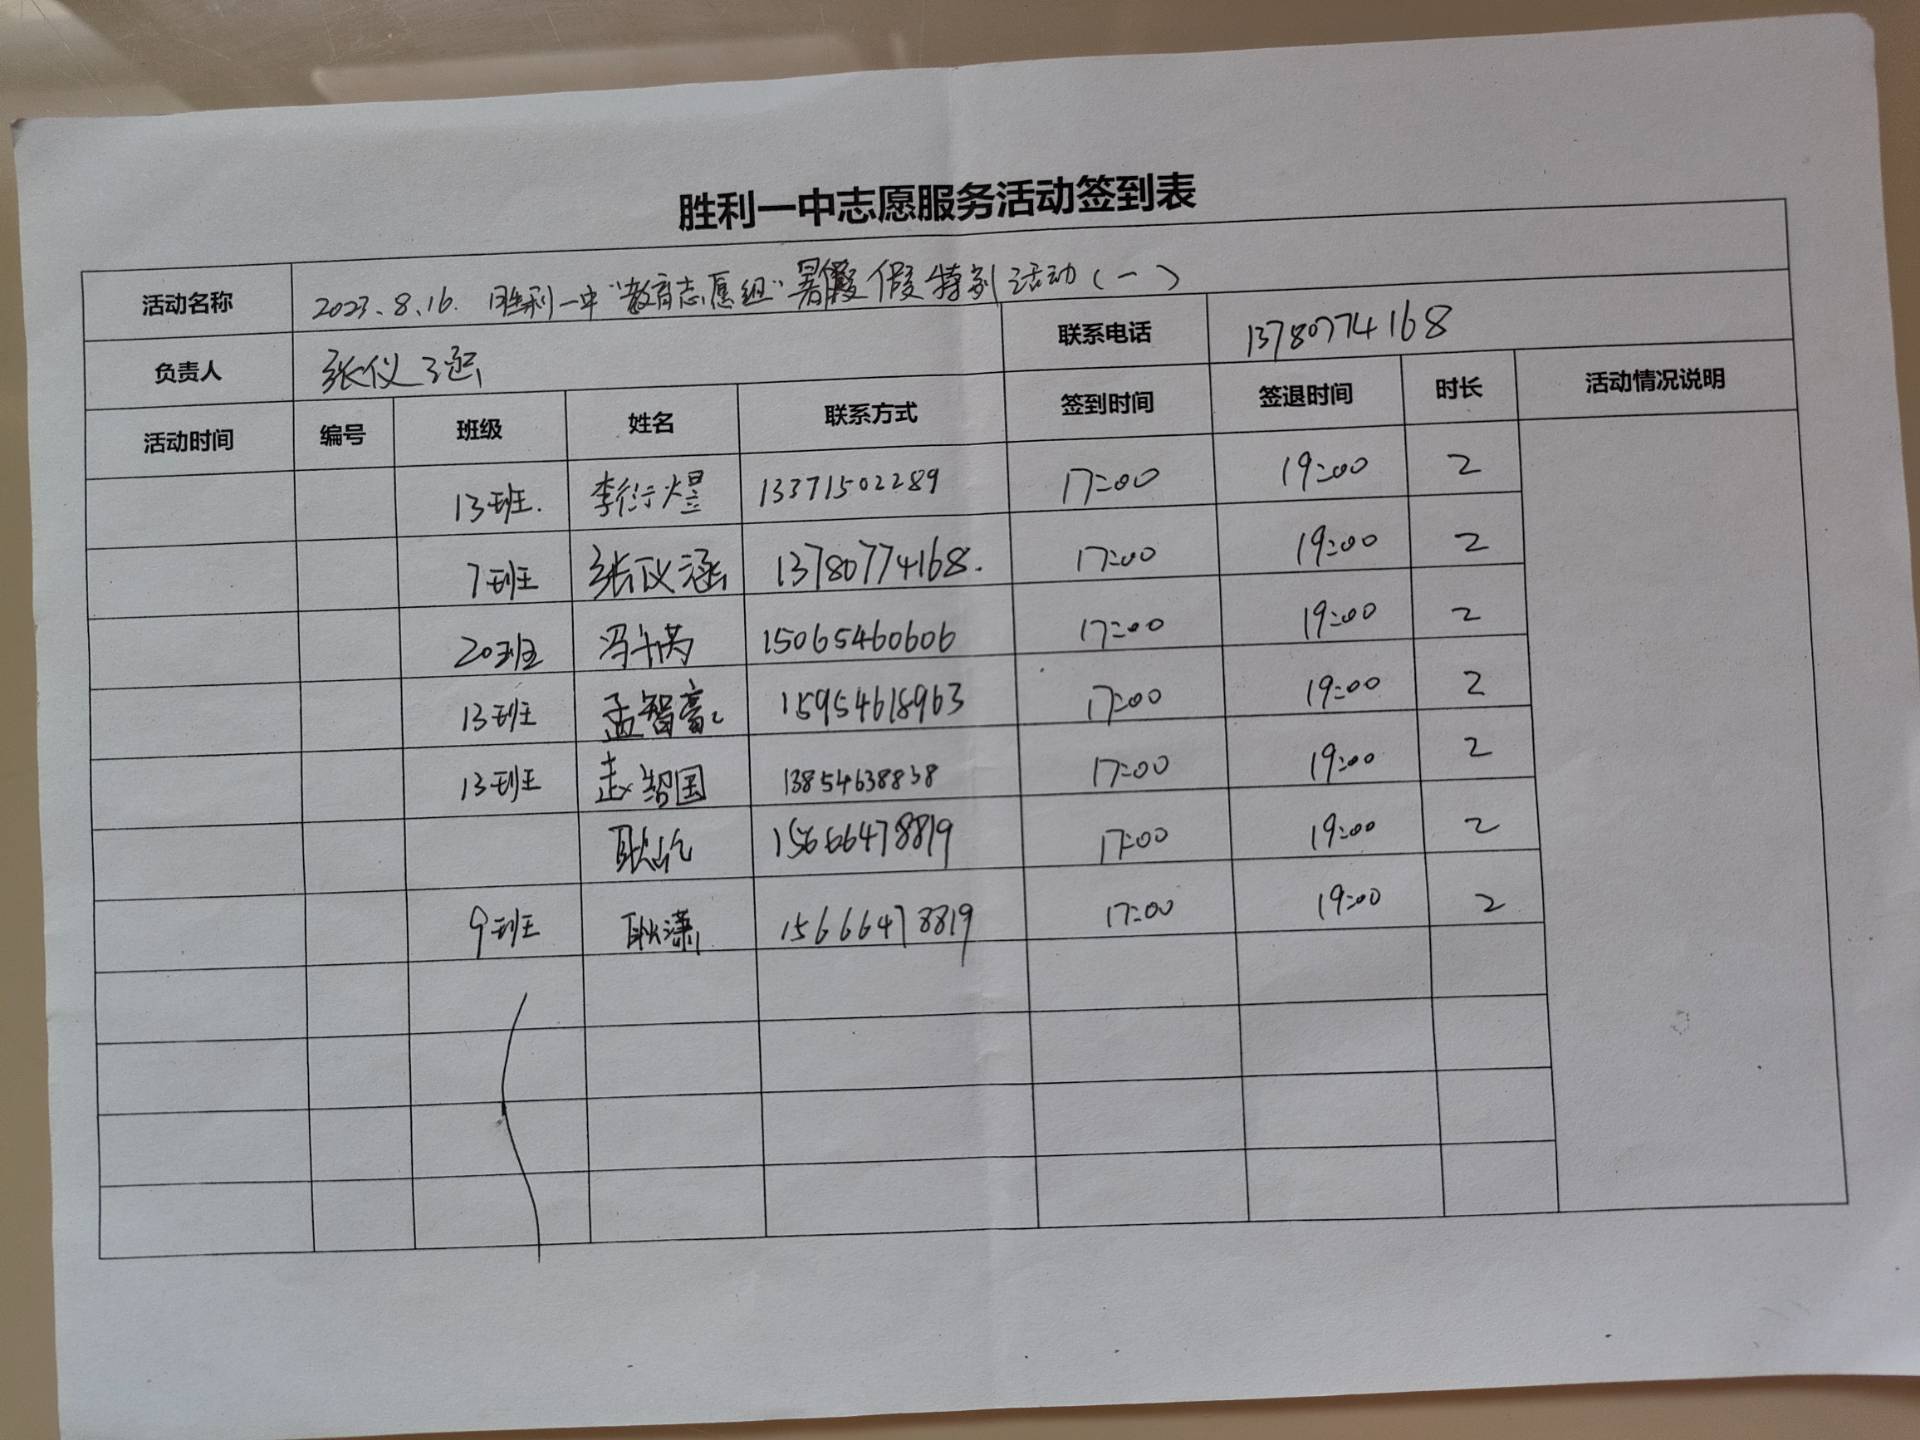 胜利一中志愿服务活动签到表
活动名称 2023.8.16. 胜利一中"教育志愿组"暑假特别活动(一)
负责人 张仪涵 联系电话 13780774168
活动时间 编号 班级 姓名 联系方式 签到时间 签退时间 时长 活动情况说明
13班. 李衍煜 13371502289 17:00 19:00 2
7班 张仪涵 13780774168. 17:00 19:00 2
20班 冯 15065460606 17:00 19:00 2
13班 孟智豪 15954618963 17:00 19:00 2
13班 赵智国 13854638838 17:00 19:00 2
耿 15666478819 17:00 19:00 2
9班 耿潇 15666478819 17:00 19:00 2